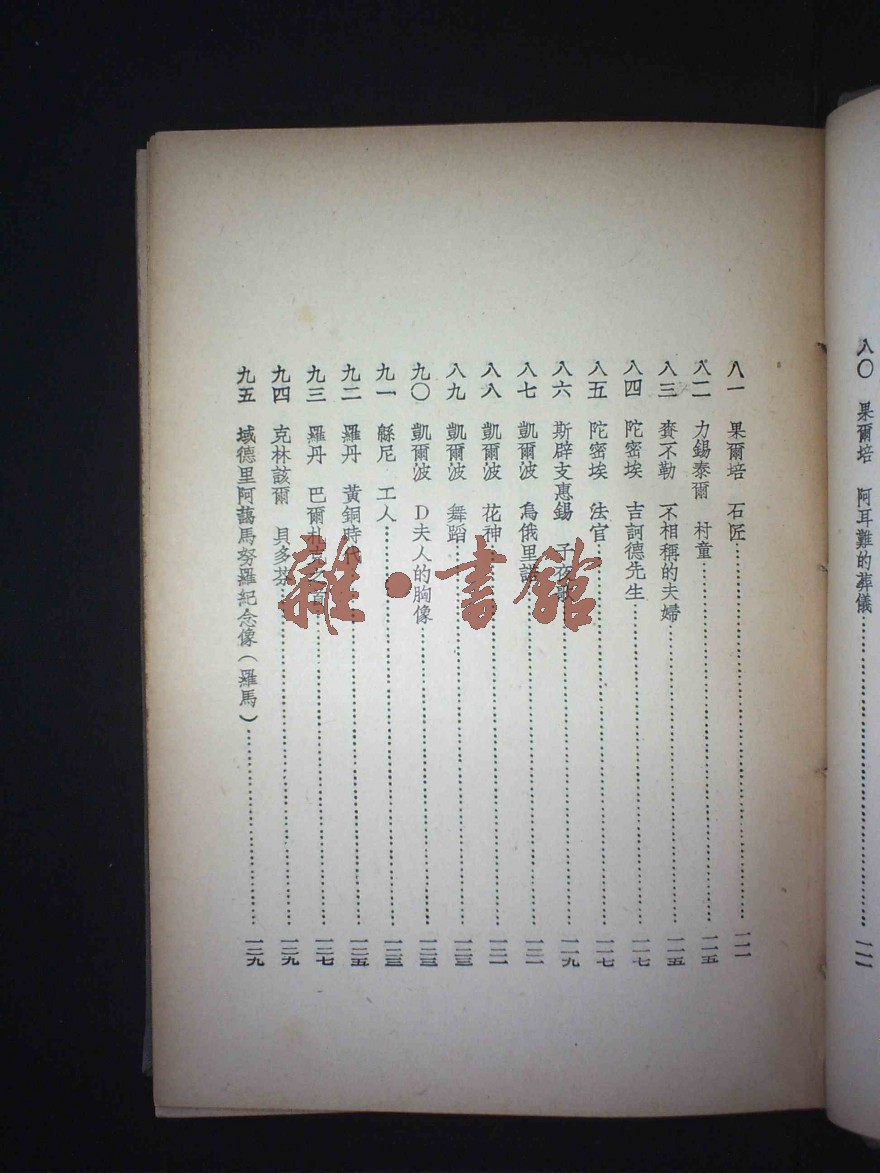 八〇 果爾培 阿耳難的葬儀 一一一
八一 果爾培 石匠 一一一
八二 力錫泰爾 村童 一一五
八三 賚不勒 不相稱的夫婦 一一五
八四 陀密埃 吉訶德先生 一一七
八五 陀密埃 法官 一一七
八六 斯辟支惠錫 子夜歌 一一九
八七 凱爾波 烏俄里諾 一二一
八八 凱爾波 花神 一二一
八九 凱爾波 舞蹈 一二三
九〇 凱爾波 D夫人的胸像 一二三
九一 緜尼 工人 一二三
九二 羅丹 黃銅時代 一二五
九三 羅丹 巴爾札克之首 一二七
九四 克林該爾 貝多芬 一二九
九五 域德里阿藹馬努羅紀念像(羅馬) 一二九
雜·書館